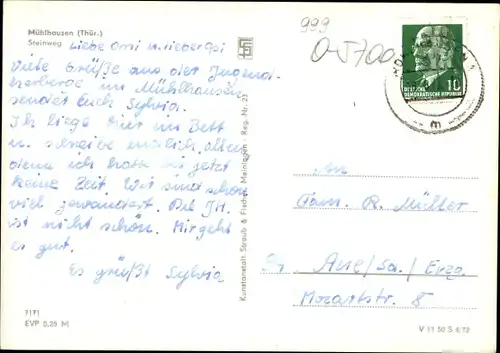 Mühlhausen (Thür.)
Steinweg
Liebe Omi u. lieber Opi
Viele Grüße aus der Jugend-
herberge in Mühlhausen
sendet Euch Sylvia.
Ich liege hier im Bett
u. schreibe endlich allen
denn ich hatte bis jetzt
keine Zeit. Wir sind schon
viel gewandert. Die JH.
ist nicht schön. Mir geht
es gut.
Es grüßt Sylvia
7171
EVP 0,25 M
Kunstanstalt Straub & Fischer Meiningen · Reg.-Nr. 21
999
0-5700
DEUTSCHE
DEMOKRATISCHE REPUBLIK
10
An
Fam. R. Müller
Aue/Sa./Erzg.
Mozartstr. 8
V 11 50 S 6/72